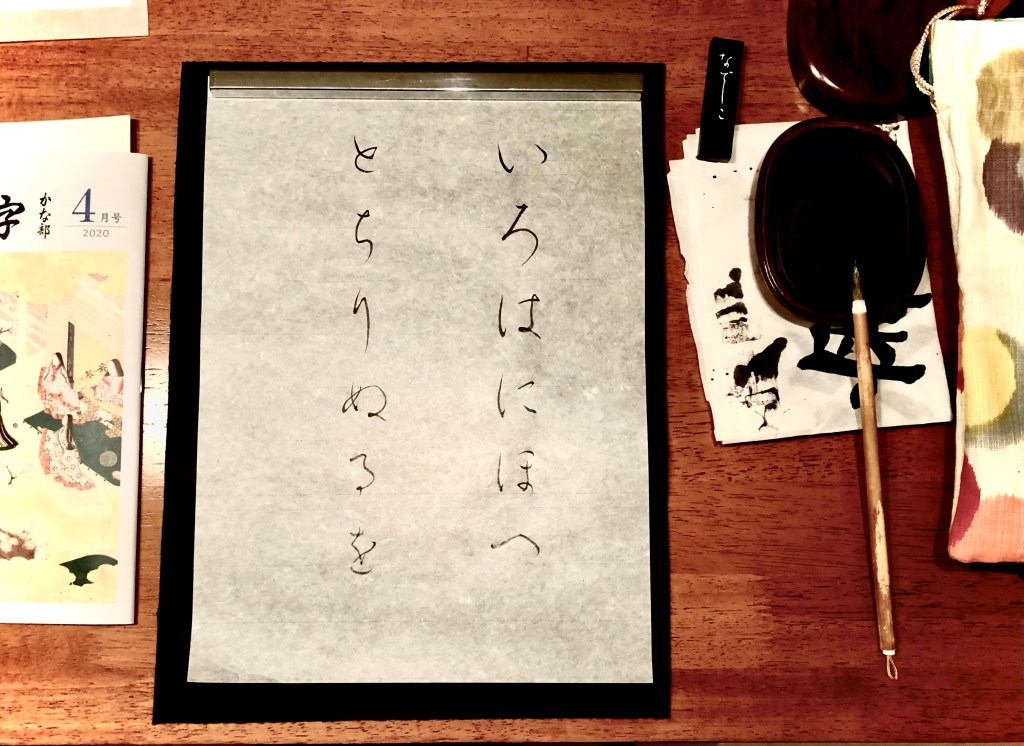 いろはにほへ
とちりぬるを
なでしこ
字
かな部
4月号
2020